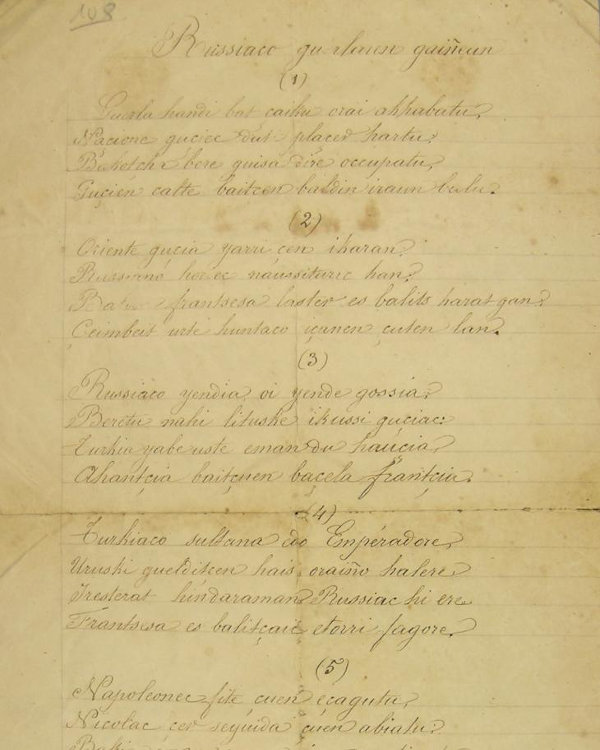 108
Russiaco guduaren gaiñean
(1)
Guerla handi bat caihu orai ahhabatu,
Nacione guciec dut placer hartu,
Bakotcha bere guisa dire occupatu,
Gucien calte baitcen baldin iraun balu.
(2)
Oriente gucia yarri cen iharan,
herec naussituric han,
frantsesa laster es balits harat gan,
Ceimbeit urte huntaco içanen çuten lan.
(3)
Russiaco yendia oi yende gossia,
Beretu nahi lituske ikussi guciac:
Turkia yabe uste eman du haucia,
Ahantcia baitçuen bacela frantcia.
(4)
Turkiaco sultana edo Empéradore,
Urushi guelditcen hais oraiño halere
Tresterat hindaraman Russiac hi ere
Frantsesa es balitçaic etorri fagore,
(5)
Napoleonec fite cuen eçaguta,
Nicolac cer seguida çuen abiatu: